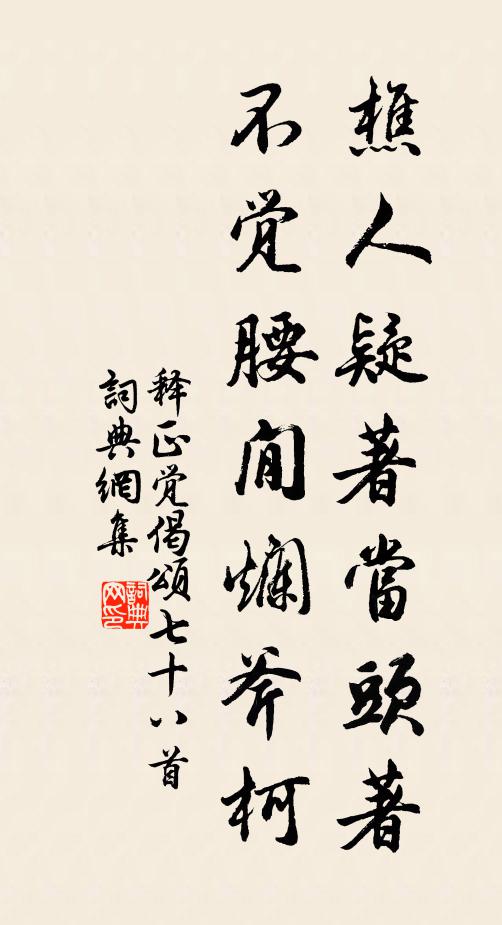 樵人疑著當頭著
不觉腰間爛斧柯
释正觉偈頌七十八首
詞典網集
詞典网印